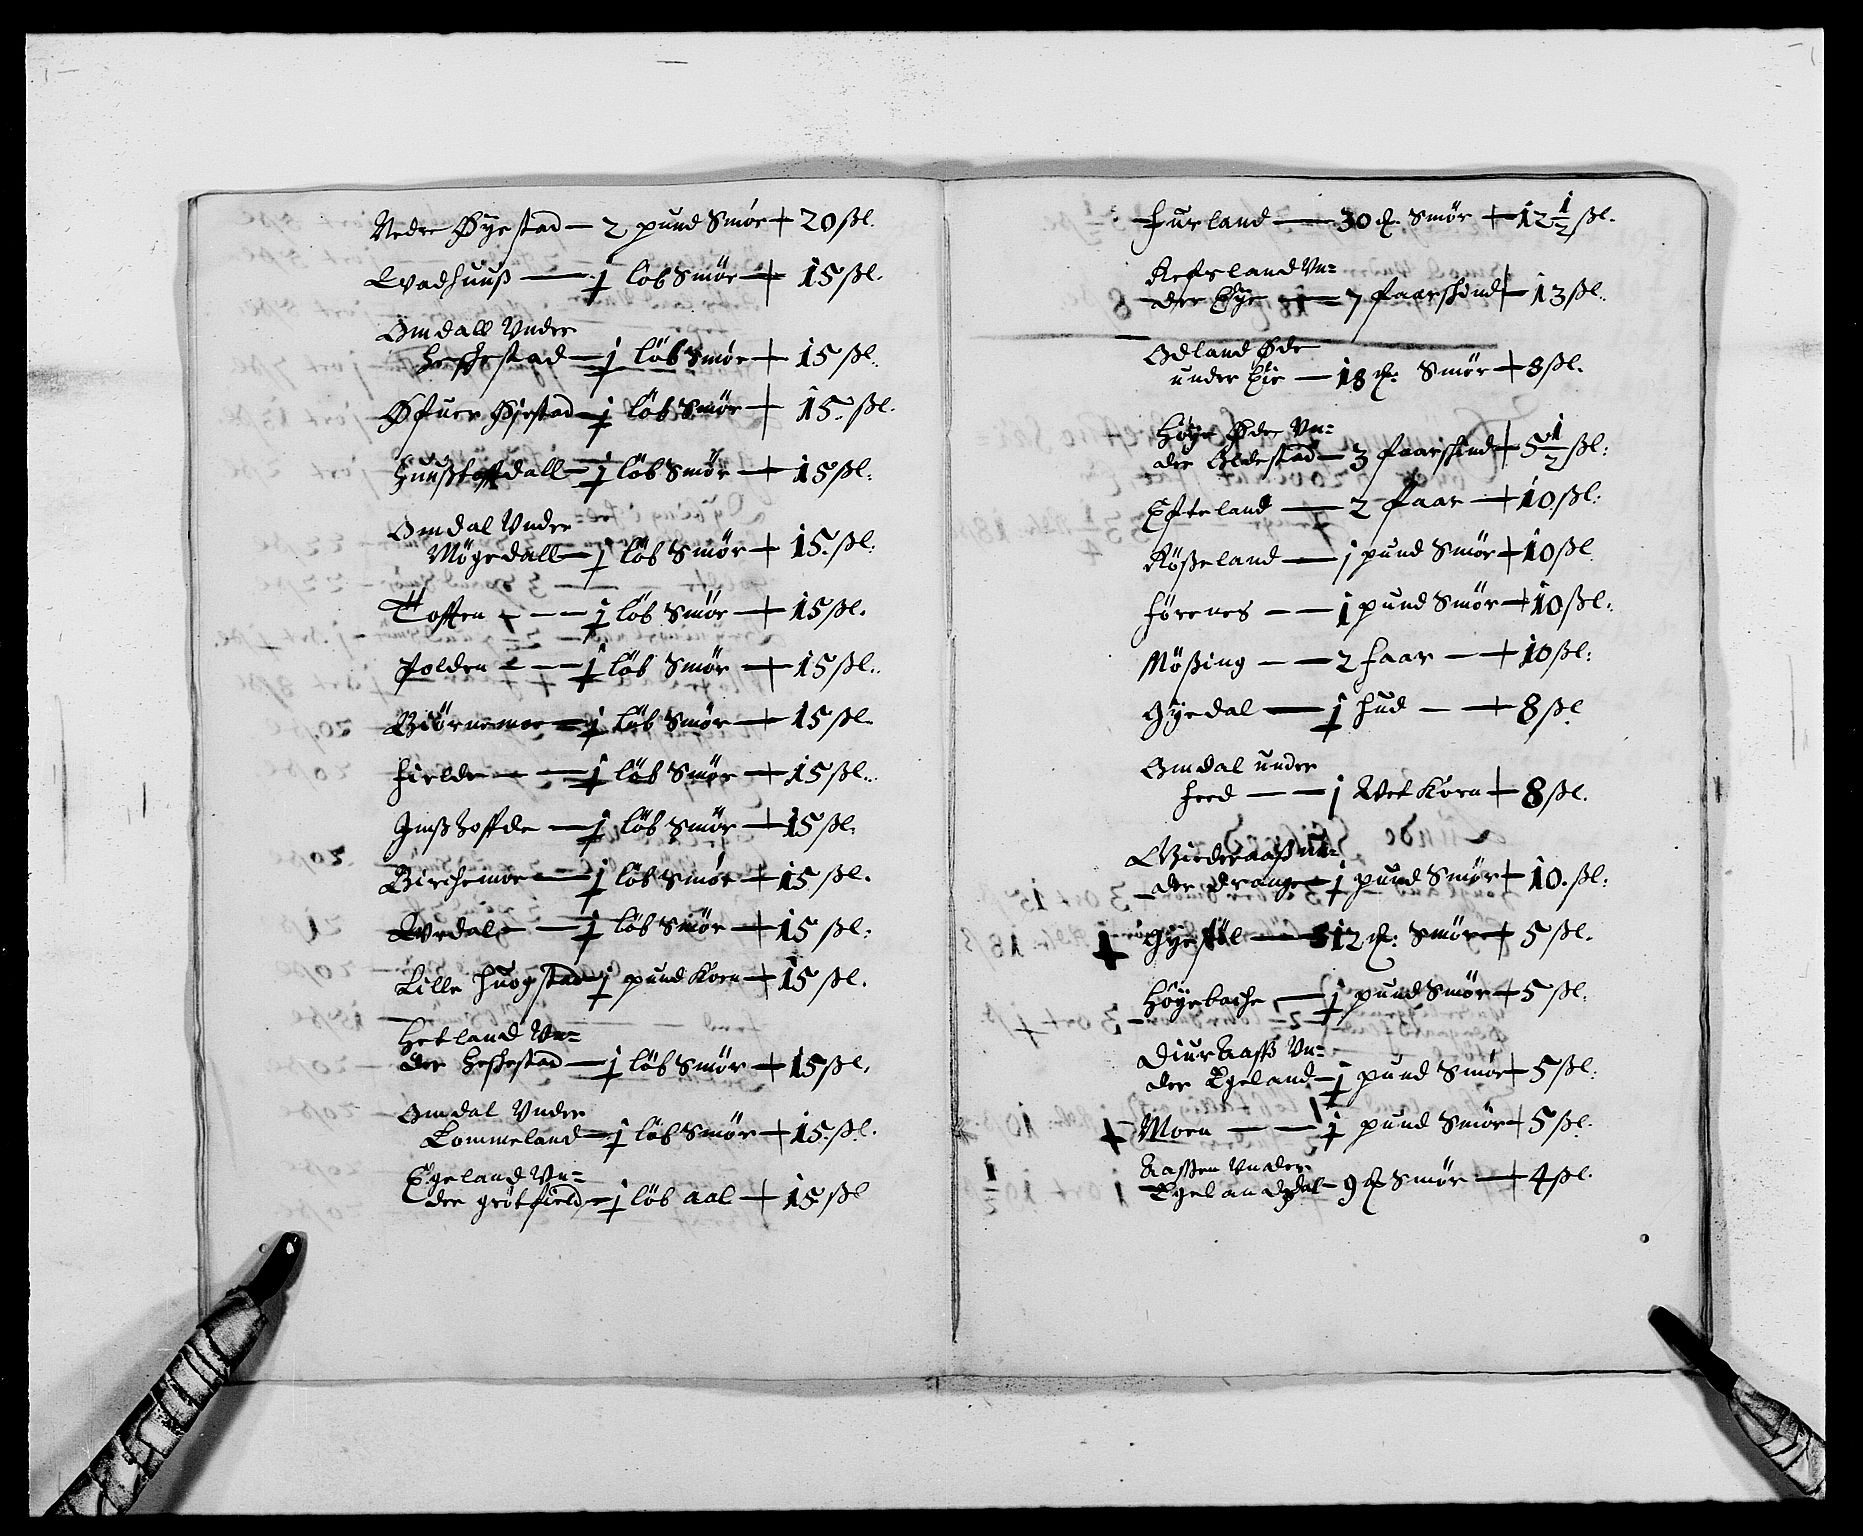 Nedre Øye stad — 2 pund Smör + 20 ßl.
Wadhuuß — j löb Smör + 15 ßl.
Omdall Vnder
Heskestad — j löb Smör + 15 ßl.
Øfuer Øiestad — j löb Smör + 15. ßl.
Huußtoffdall — j löb Smör + 15 ßl.
Omdal Vnder
Mögedall — j löb Smör + 15. ßl.
Toften — j löb Smör + 15 ßl.
Polden — j löb Smör + 15 ßl.
Biörnemoe — j löb Smör + 15 ßl.
Fielde — j löb Smör + 15 ßl.
j löb Smör + 15 ßl.
Birchemoe — j löb Smör + 15 ßl.
Ardal — j löb Smör + 15 ßl.
Lille Huogstad — j pund Korn + 15 ßl.
Hetland Vn=
der Heskestad — j löb Smör + 15 ßl.
Omdal Vnder
Tommeland — j löb Smör + 15. ßl.
Egeland Vn=
der grötfield — j löb aal + 15 ßl
Furland — 30 Smör + 12 1/2 ßl.
Refsland Vn=
der Øye — 7 faarskind + 13 ßl.
Odland Øde
under Eie — 18 Smör + 8 ßl.
Höye Øde Vn=
der Oldestad — 3 faarskind + 5 1/2 ßl.
Efteland — 2 faar + 10 ßl.
Rößeland — j pund Smör + 10 ßl.
Förenes — 1 pund Smör + 10 ßl.
Mößing — 2 faar + 10 ßl.
Gyedal — j hud + 8 ßl
Omdal under
Feed — j Vet Korn + 8 ßl.
Wideraaß Vn=
der Drange — j pund Smör + 10. ßl.
+ Gyestöl — 12 Smör + 5 ßl.
Höyebache — j pund Smör + 5 ßl.
Diuraaß Vn=
der Egeland — j pund Smör + 5 ßl.
+ Moen — j pund Smör + 5 ßl.
Aaßen Vnder
Egelandsdal — 9 Smör + 4 ßl.